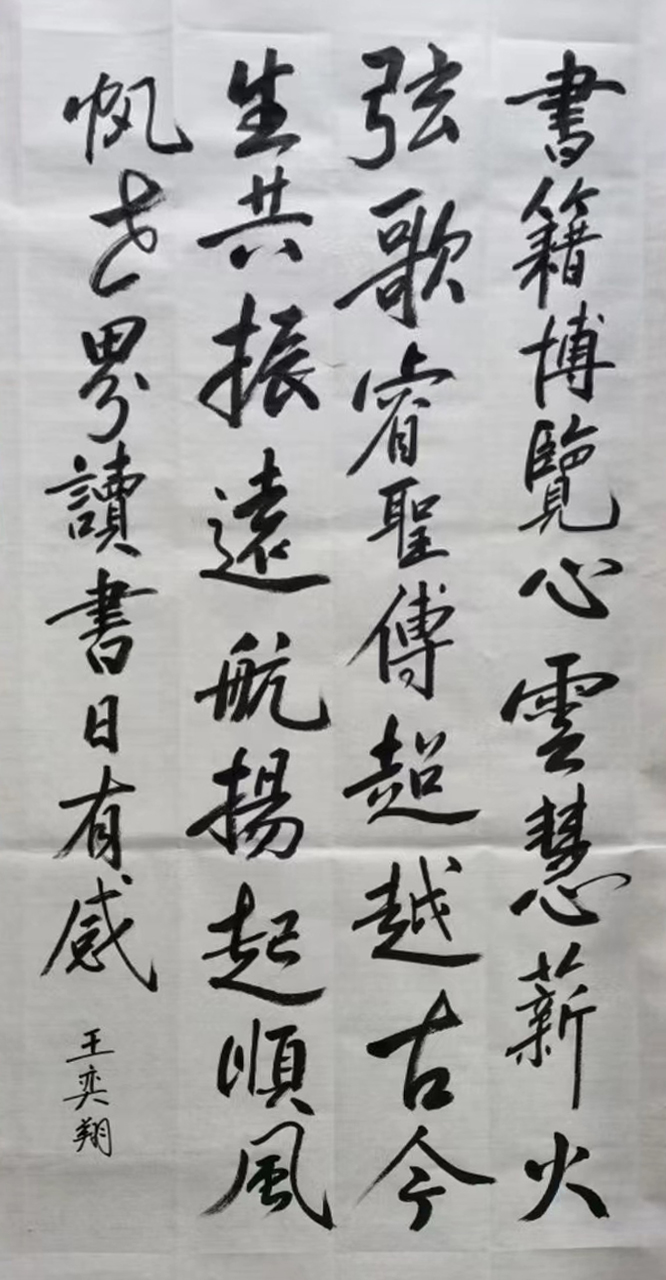 書籍博覽心雲慧薪火
弦歌睿聖傳超越古今
生共振遠航揚起順風
帆世界讀書日有感
王奕翔